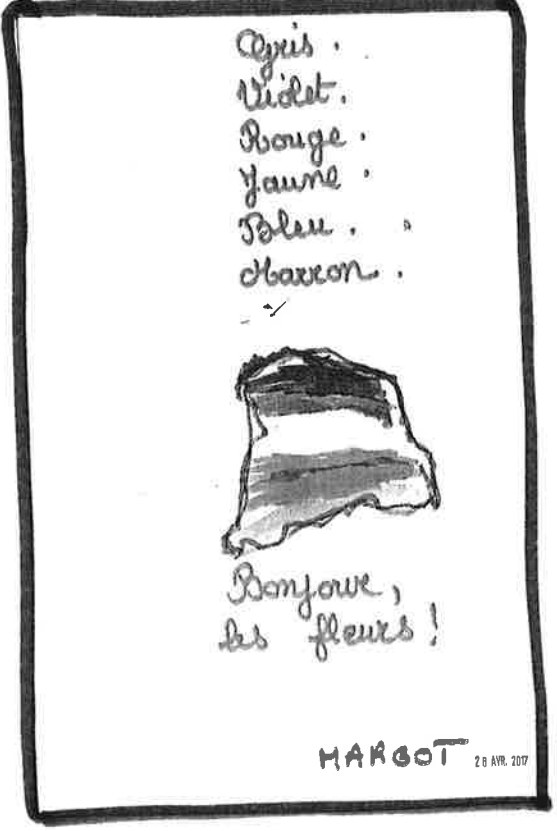 Gris.
Violet.
Rouge.
Jaune.
Bleu.
Marron.
Bonjour,
les fleurs !
MARGOT 28 AVR. 2017